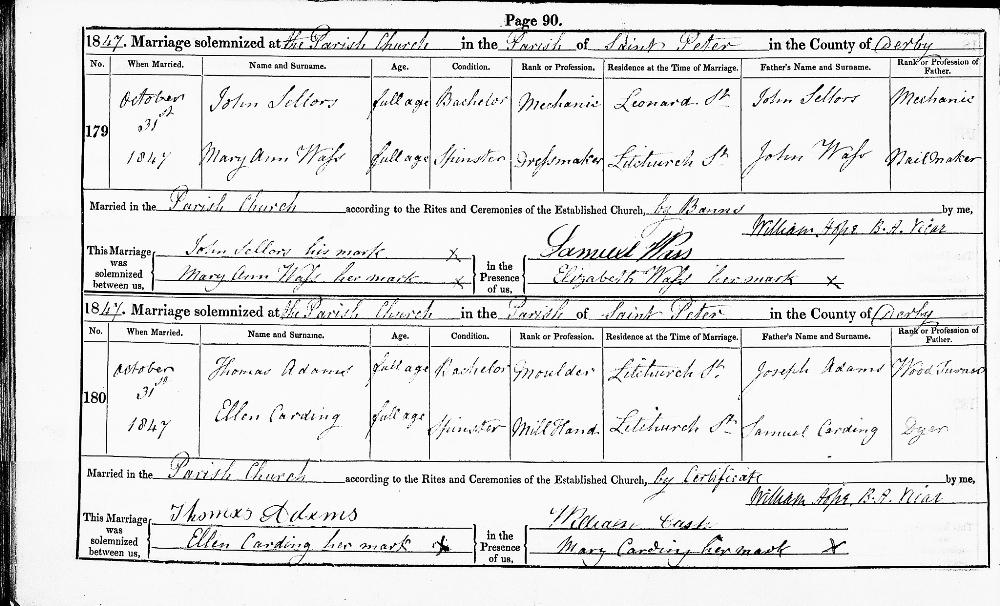 Page 90.
1847. Marriage solemnized at the Parish Church in the Parish of Saint Peter in the County of Derby
No. When Married. Name and Surname. Age. Condition. Rank or Profession. Residence at the Time of Marriage. Father's Name and Surname. Rank or Profession of Father.
179 October 31st 1847 John Sellors full age Bachelor Mechanic Leonard St John Sellors Mechanic
Mary Ann Wass full age Spinster Dressmaker Litchurch St John Wass Nailmaker
Married in the Parish Church according to the Rites and Ceremonies of the Established Church, by Banns by me,
William Hope B.A. Vicar
This Marriage was solemnized between us, John Sellors his mark X in the Presence of us, Samuel Wass
Mary Ann Wass her mark X Elizabeth Wass her mark X
1847. Marriage solemnized at the Parish Church in the Parish of Saint Peter in the County of Derby
No. When Married. Name and Surname. Age. Condition. Rank or Profession. Residence at the Time of Marriage. Father's Name and Surname. Rank or Profession of Father.
180 October 31st 1847 Thomas Adams full age Bachelor Moulder Litchurch St Joseph Adams Wood Turner
Ellen Carding full age Spinster Mill Hand Litchurch St Samuel Carding Dyer
Married in the Parish Church according to the Rites and Ceremonies of the Established Church, by Certificate by me,
William Hope B.A. Vicar
This Marriage was solemnized between us, Thomas Adams in the Presence of us, William Cash
Ellen Carding her mark X Mary Carding her mark X